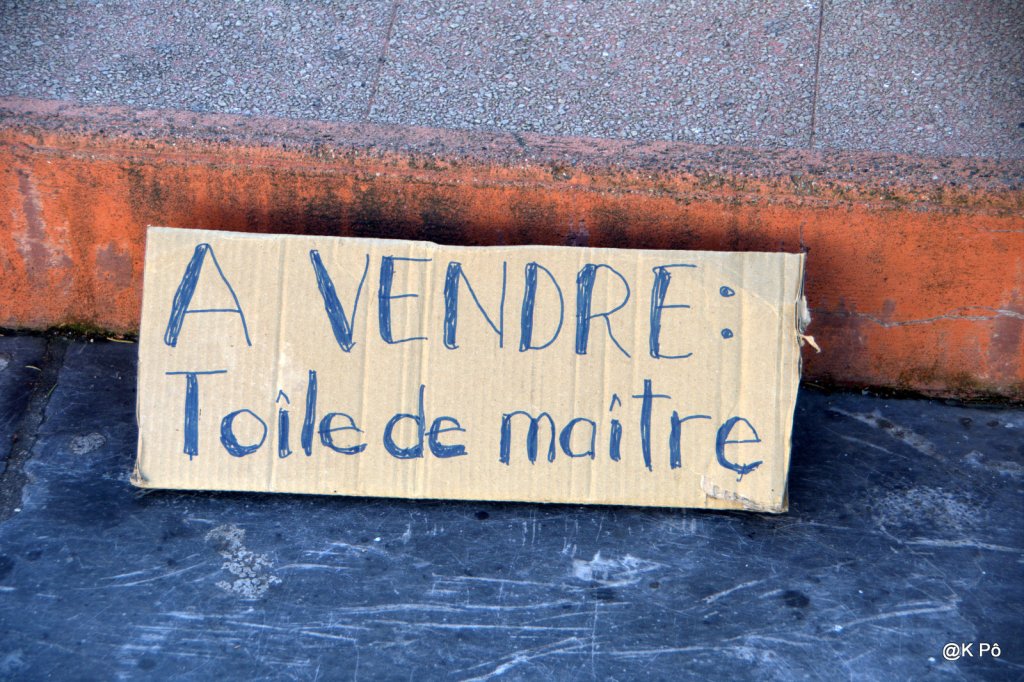 A VENDRE :
Toîle de maître
@K Pô